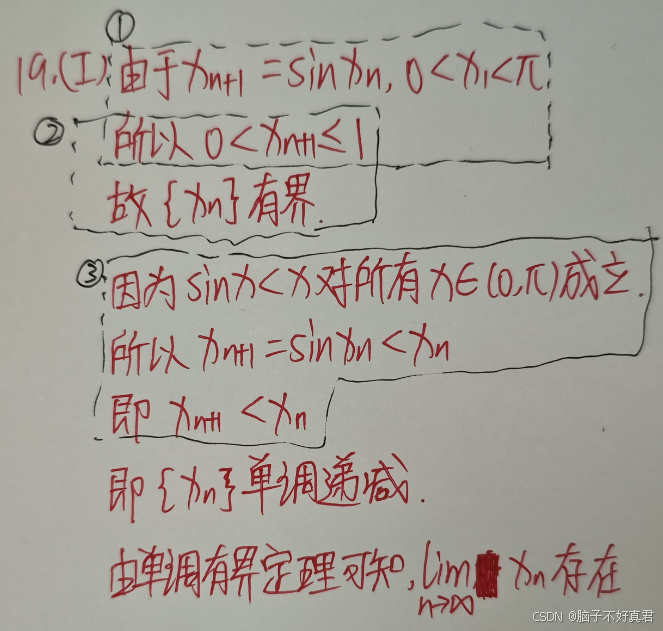 ①
19.(I) 由于 xn+1 = sin xn, 0 < x1 < π
② 所以 0 < xn+1 ≤ 1
故 {xn} 有界.
③ 因为 sin x < x 对所有 x ∈ (0, π) 成立.
所以 xn+1 = sin xn < xn
即 xn+1 < xn
即 {xn} 单调递减.
由单调有界定理可知, lim xn 存在
n→∞
CSDN @脑子不好真君